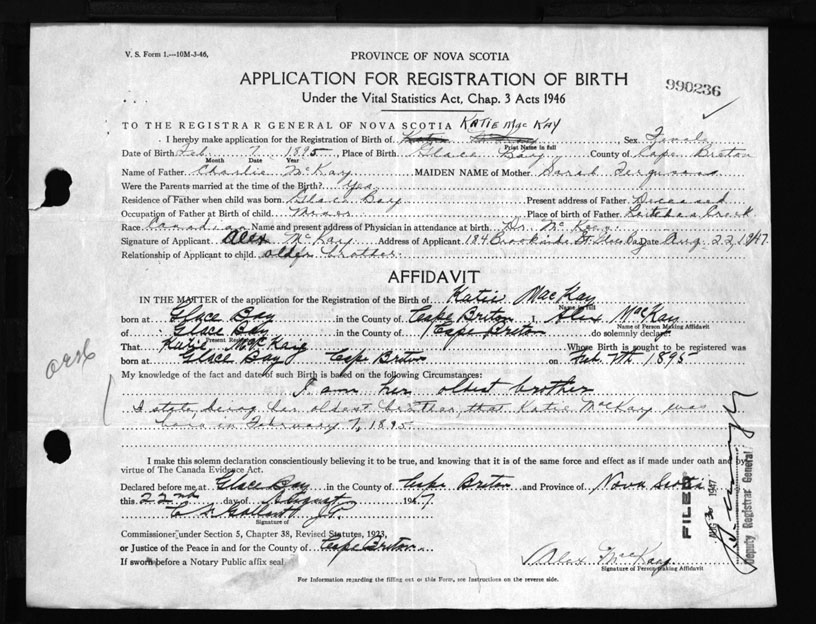 V. S. Form 1.—10M-3-46,
PROVINCE OF NOVA SCOTIA
APPLICATION FOR REGISTRATION OF BIRTH
990236
Under the Vital Statistics Act, Chap. 3 Acts 1946
TO THE REGISTRAR GENERAL OF NOVA SCOTIA KATIE MacKAY
I hereby make application for the Registration of Birth of Sex Female
Print Name in full
Date of Birth Feb 7 1895 Place of Birth Glace Bay County of Cape Breton
Month Day Year
Name of Father Charlie McKay MAIDEN NAME of Mother Sarah Ferguson
Were the Parents married at the time of the Birth? Yes
Residence of Father when child was born Glace Bay Present address of Father Deceased
Occupation of Father at Birth of child. Miner Place of birth of Father Leitches Creek
Race Canadian Name and present address of Physician in attendance at birth Dr. McKeen
Signature of Applicant Alex McKay Address of Applicant 184 Brookside St. Glace Bay Date Aug. 22, 1947.
Relationship of Applicant to child. older brother.
AFFIDAVIT
IN THE MATTER of the application for the Registration of the Birth of Katie MacKay
Name in full
born at Glace Bay in the County of Cape Briton I, Alex MacKay
Name of Person Making Affidavit
of Glace Bay in the County of Cape Breton do solemnly declare:
That Katie McKaig Whose Birth is sought to be registered was
born at Glace Bay Cape Briton on Feb 7th 1895
My knowledge of the fact and date of such Birth is based on the following Circumstances:
I am her oldest brother
I state being her oldest brother, that Katie McKay was
born in February 7, 1895
I make this solemn declaration conscientiously believing it to be true, and knowing that it is of the same force and effect as if made under oath and by
virtue of The Canada Evidence Act.
Declared before me at Glace Bay in the County of Cape Briton and Province of Nova Scotia
this 22nd day of August 1947
Gallant J.P.
Signature of
Commissioner under Section 5, Chapter 38, Revised Statutes, 1923,
or Justice of the Peace in and for the County of Cape Briton
If sworn before a Notary Public affix seal
Alex MacKay
Signature of Person Making Affidavit
For Information regarding the filling out of this Form, see Instructions on the reverse side.
FILED
1947
Deputy Registrar General